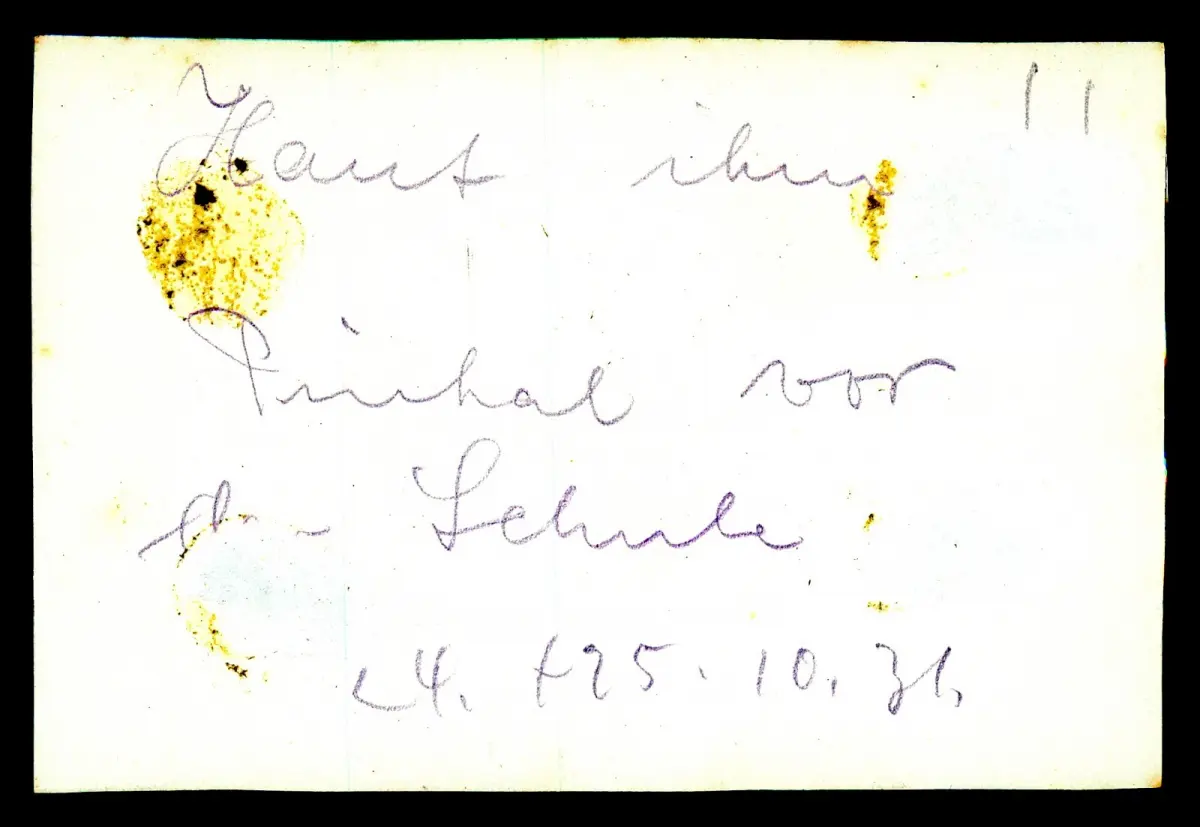 11
Haut ihm
Pinhal vor
Schule
24. + 25. 10. 71.